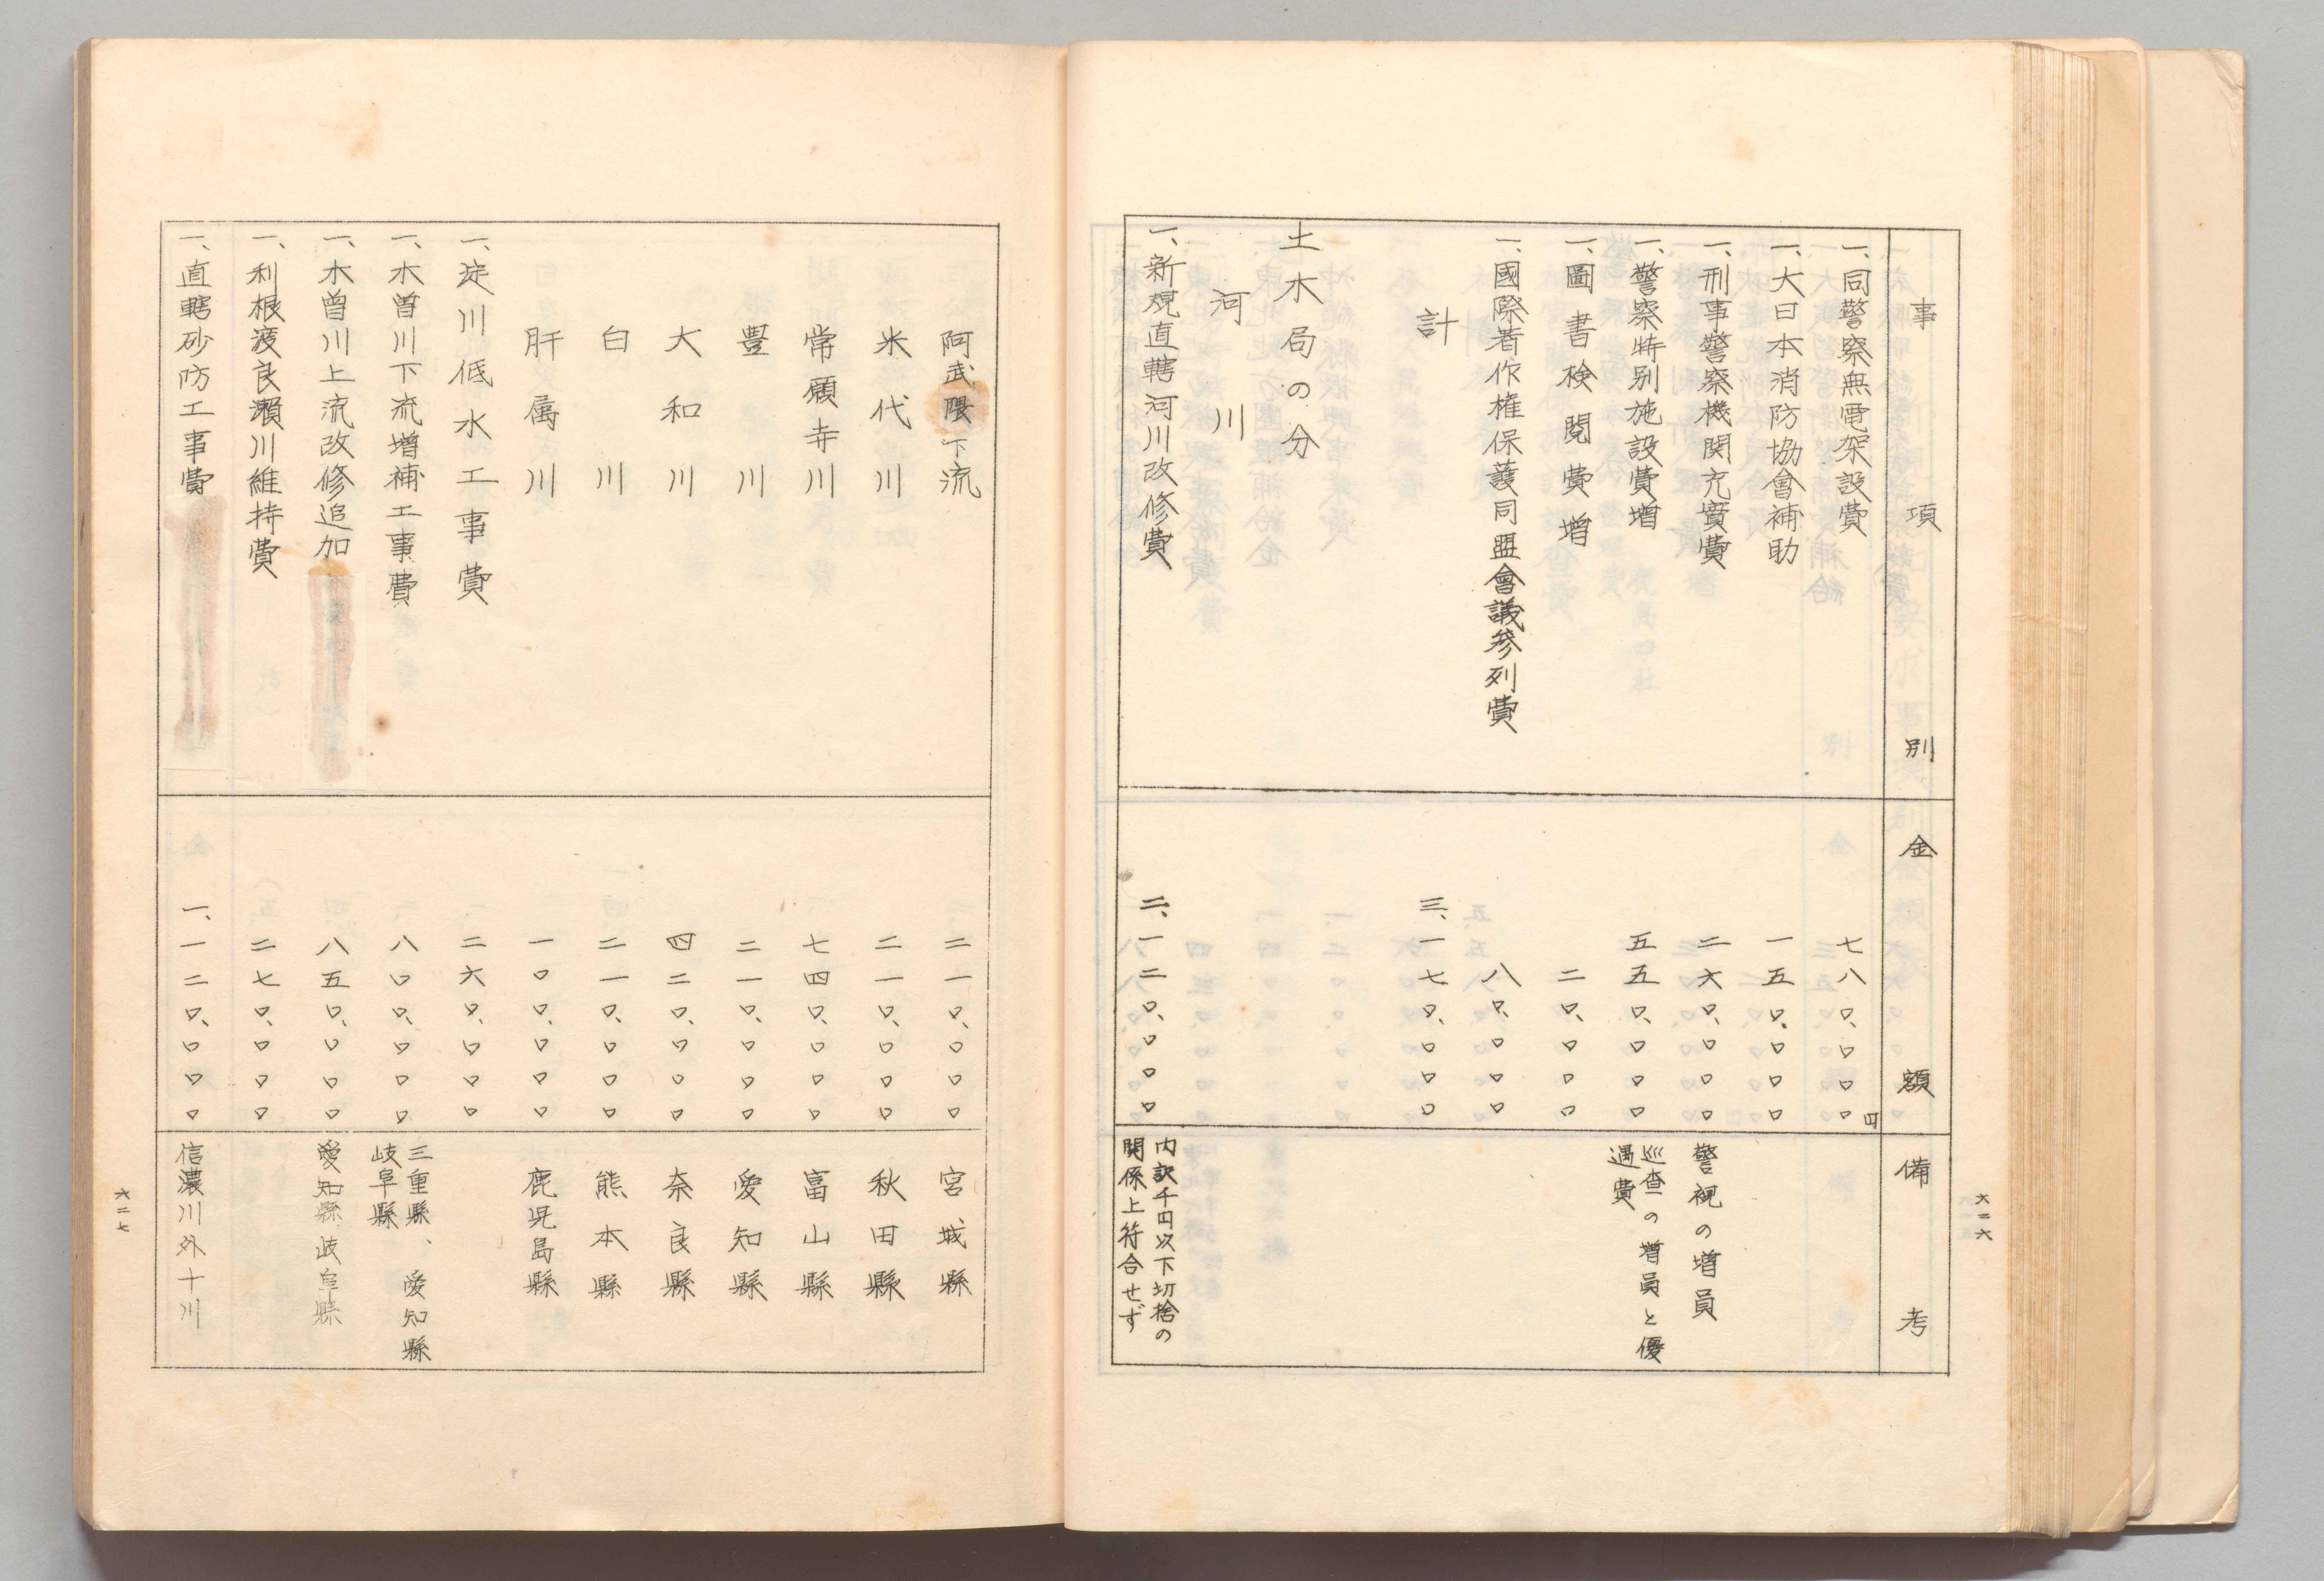 事項別 金額 備考
一、同警察無電架設費 七八〇、〇〇〇円
一、大日本消防協會補助 一五〇、〇〇〇
一、刑事警察機関充實費 二六〇、〇〇〇 警視の増員
一、警察特別施設費増 五五〇、〇〇〇 巡査の増員と優遇費
一、圖書検閲費増 二〇、〇〇〇
一、國際著作権保護同盟會議参列費 八〇、〇〇〇
計 三、一七〇、〇〇〇
土木局の分
河川
一、新規直轄河川改修費 二、一二〇、〇〇〇 内訳千円以下切捨の関係上符合せず
六二六
阿武隈下流 二一〇、〇〇〇 宮城縣
米代川 二一〇、〇〇〇 秋田縣
常願寺川 七四〇、〇〇〇 富山縣
豊川 二一〇、〇〇〇 愛知縣
大和川 四二〇、〇〇〇 奈良縣
白川 二一〇、〇〇〇 熊本縣
肝属川 一〇〇、〇〇〇 鹿児島縣
一、淀川低水工事費 二六〇、〇〇〇
一、木曽川下流増補工事費 八〇〇、〇〇〇 三重縣、愛知縣岐阜縣
一、木曽川上流改修追加 八五〇、〇〇〇 愛知縣岐阜縣
一、利根渡良瀬川維持費 二七〇、〇〇〇
一、直轄砂防工事費 一、一二〇、〇〇〇 信濃川外十川
六二七